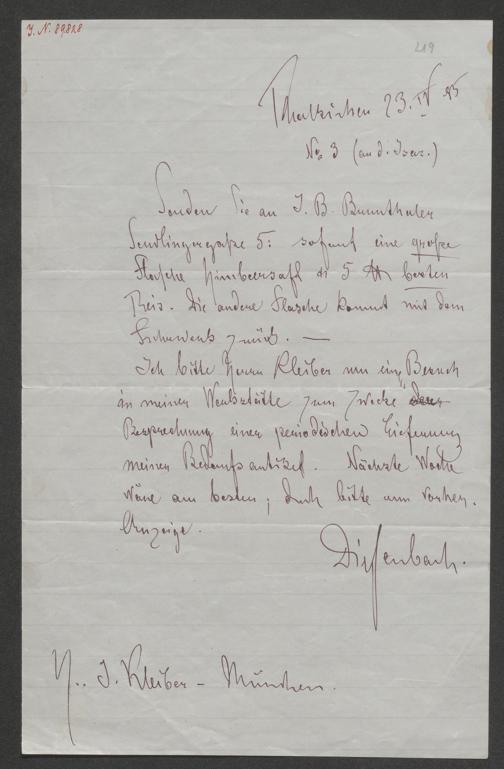 J. N. 89828
219
Thalkirchen 23. IV 95
No 3 (an d. Isar.)
Senden Sie an J. B. Brunnthaler
Sendlingergaße 5: sofort eine große
Flasche Himbeersaft & 5 ℔ besten
Reis. Die andere Flasche kommt mit dem
zurück. —
Ich bitte Herrn Kleiber um ein Besuch
in meiner Werkstätte zum Zwecke
Besprechung einer periodischen Lieferung
meiner Bedarfsartikel. Nächste Woche
wäre am besten; doch bitte um vorher.
Anzeige.
Diefenbach.
H. J. Kleiber – München.